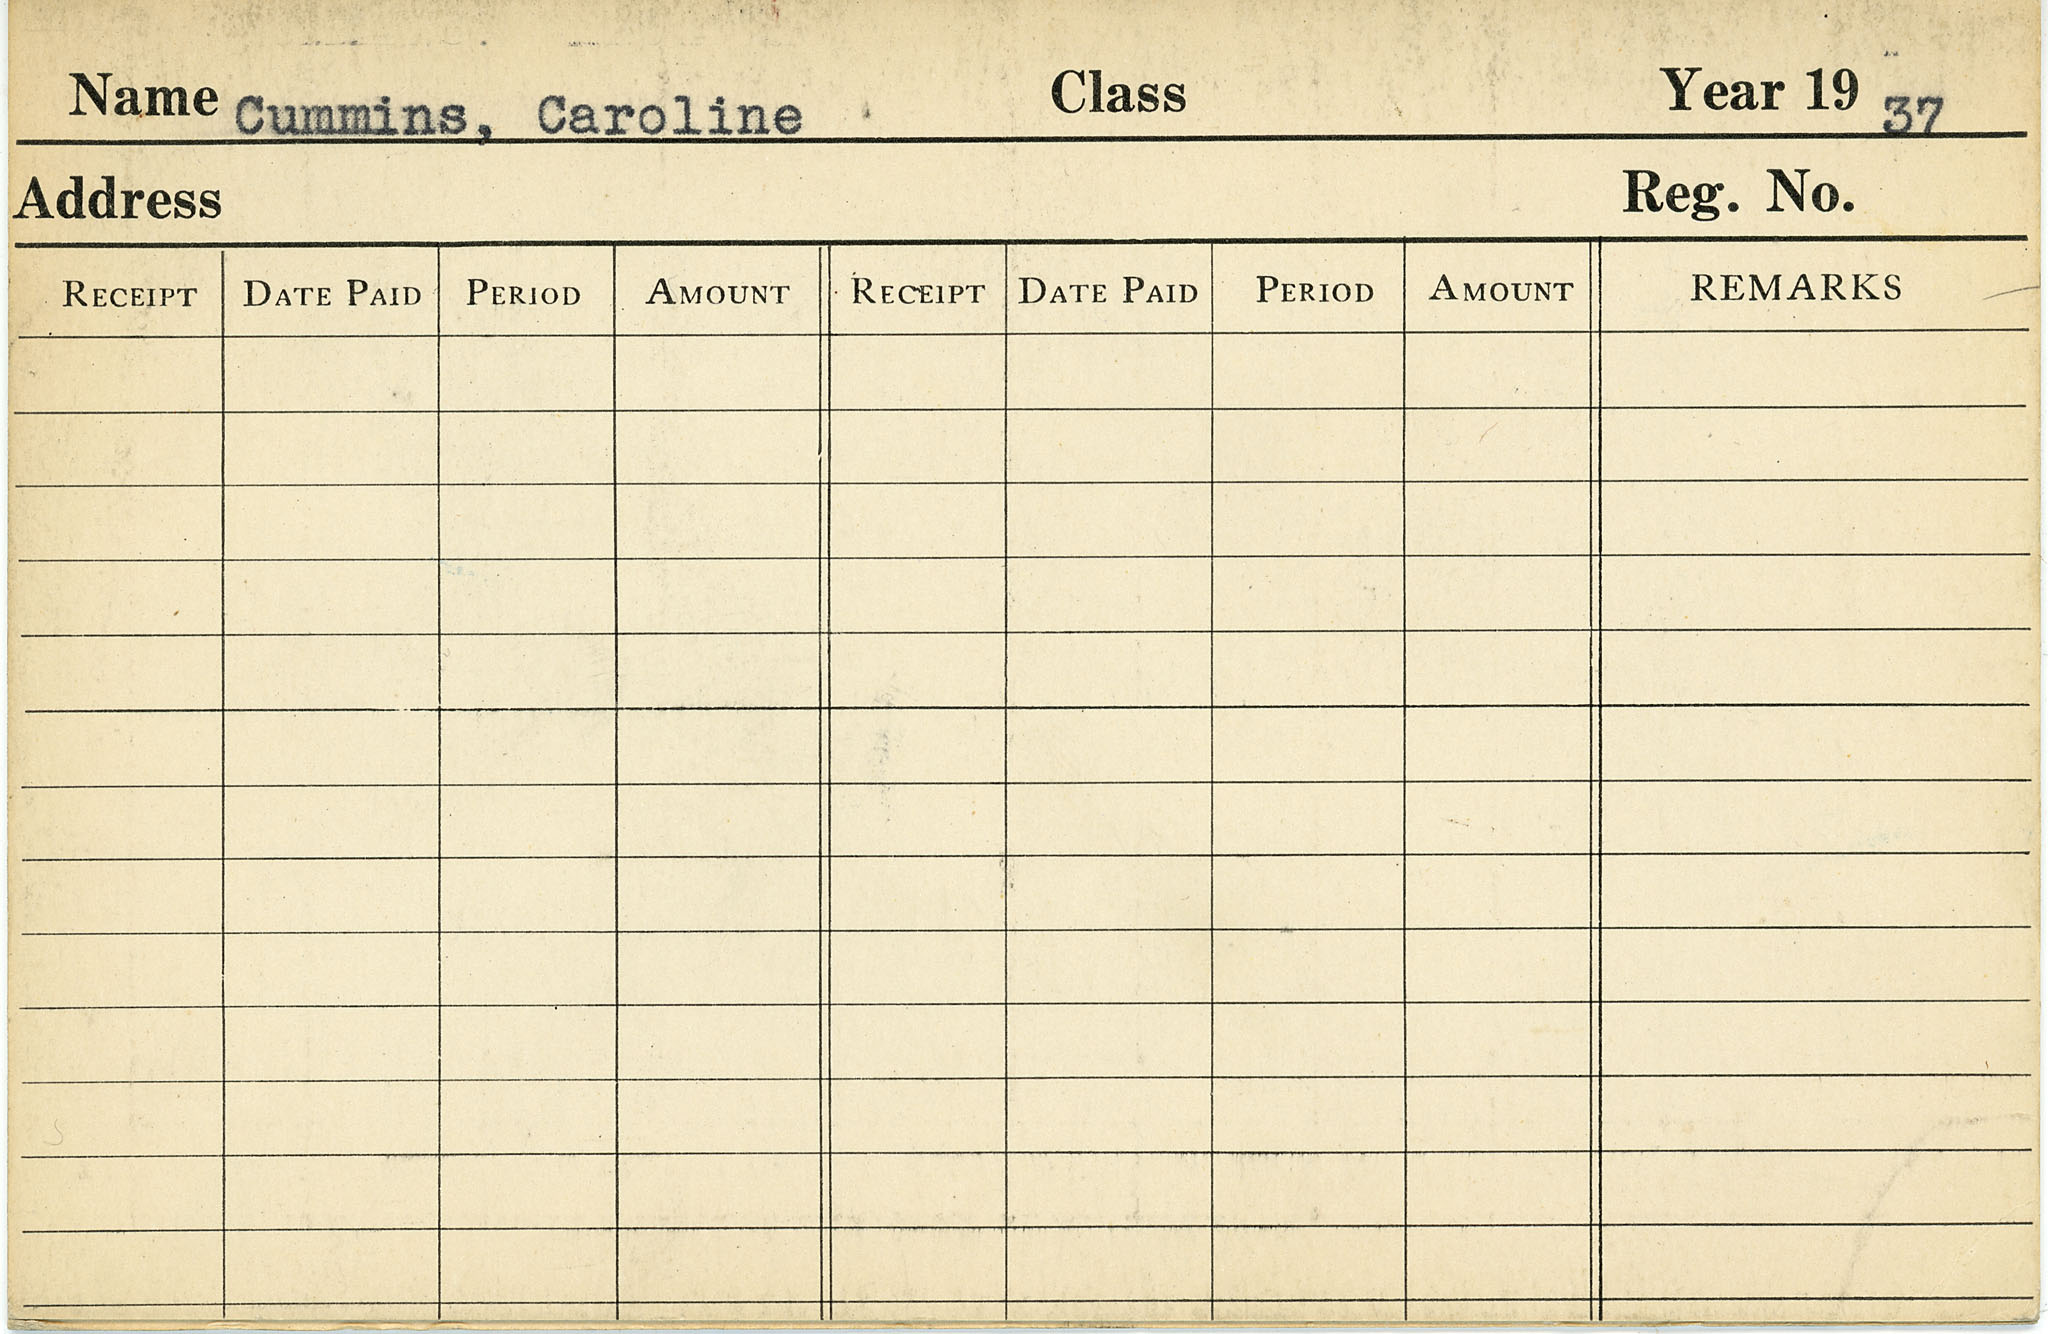 Name Cummins, Caroline Class Year 19 37
Address Reg. No.
RECEIPT DATE PAID PERIOD AMOUNT RECEIPT DATE PAID PERIOD AMOUNT REMARKS